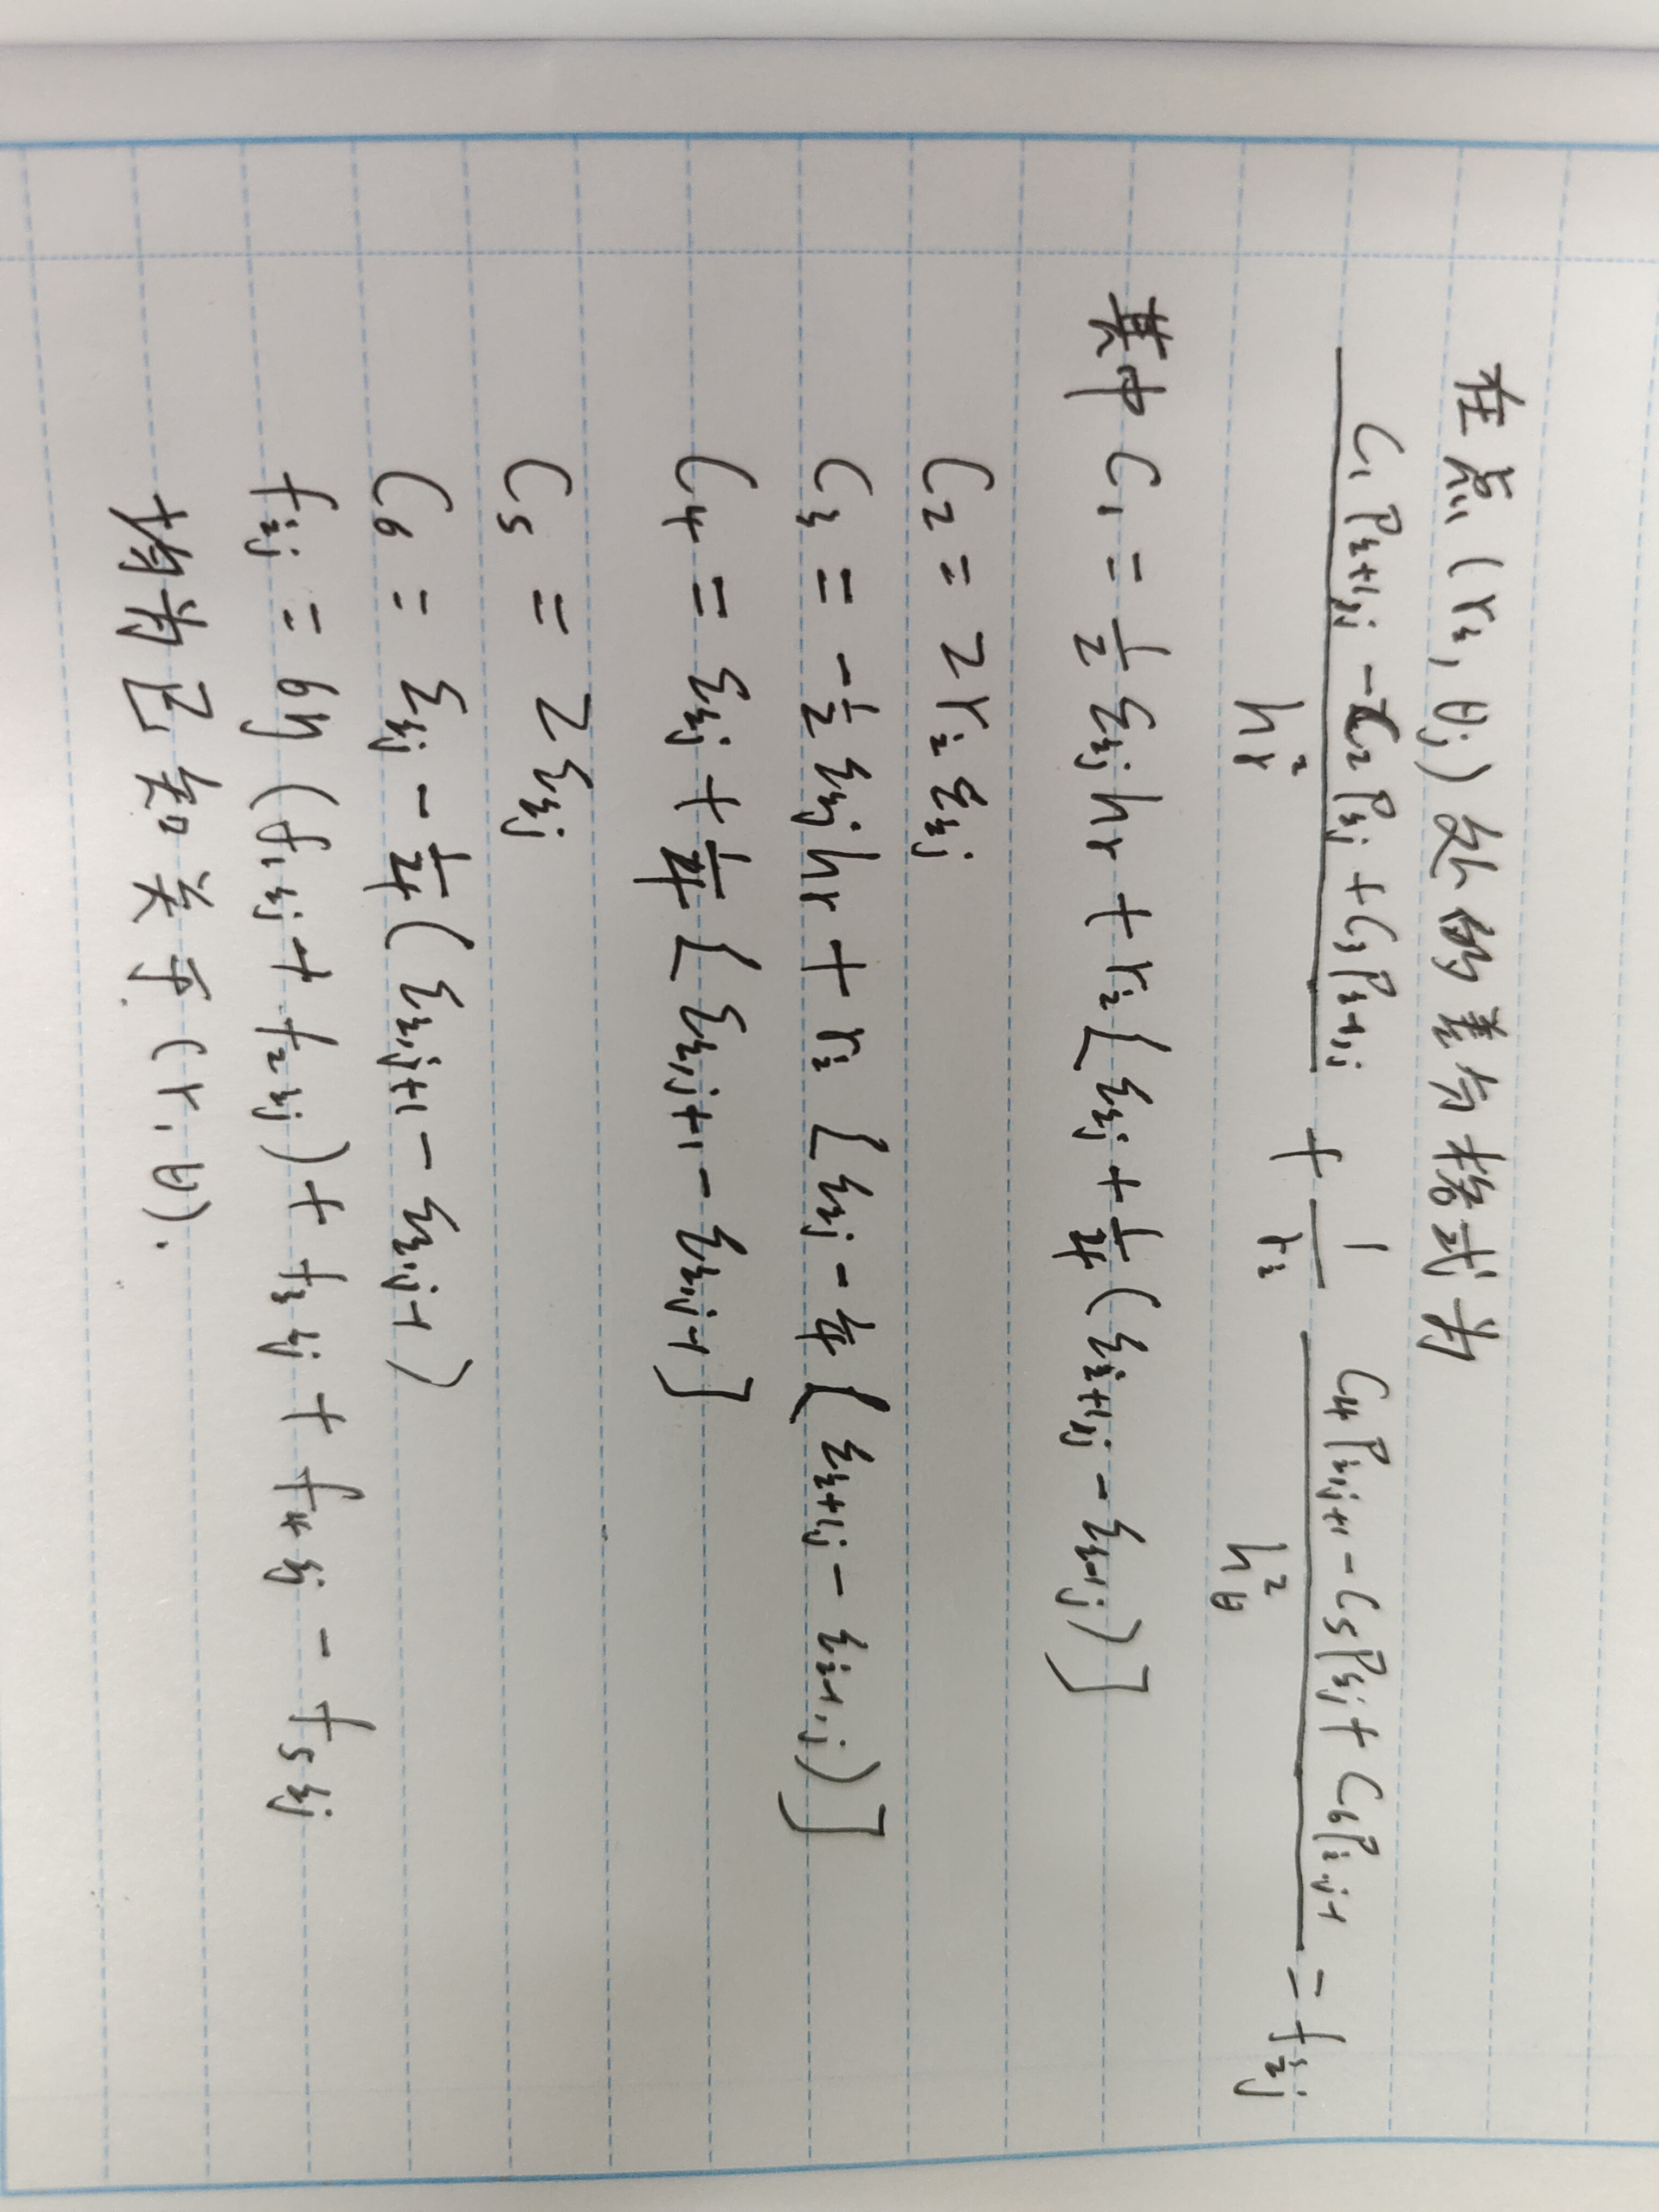 在点(rᵢ, θⱼ)处的差分格式为
(C₁Pᵢ₊₁,ⱼ - C₂Pᵢⱼ + C₃Pᵢ₋₁,ⱼ)/hᵣ² + 1/rᵢ (C₄Pᵢ,ⱼ₊₁ - C₅Pᵢⱼ + C₆Pᵢ,ⱼ₋₁)/h_θ² = fᵢⱼ
其中 C₁ = ½ εᵢⱼhᵣ + rᵢ[εᵢⱼ + ¼(εᵢ₊₁,ⱼ - εᵢ₋₁ⱼ)]
C₂ = 2rᵢεᵢⱼ
C₃ = -½ εᵢⱼhᵣ + rᵢ[εᵢⱼ - ¼[εᵢ₊₁ⱼ - εᵢ₋₁,ⱼ)]
C₄ = εᵢⱼ + ¼[εᵢ,ⱼ₊₁ - εᵢ,ⱼ₋₁]
C₅ = 2εᵢⱼ
C₆ = εᵢⱼ - ¼(εᵢ,ⱼ₊₁ - εᵢ,ⱼ₋₁)
fᵢⱼ = 6η(f₁ᵢⱼ + f₂ᵢⱼ) + f₃ᵢⱼ + f₄ᵢⱼ - f₅ᵢⱼ
均为已知关于(r, θ).